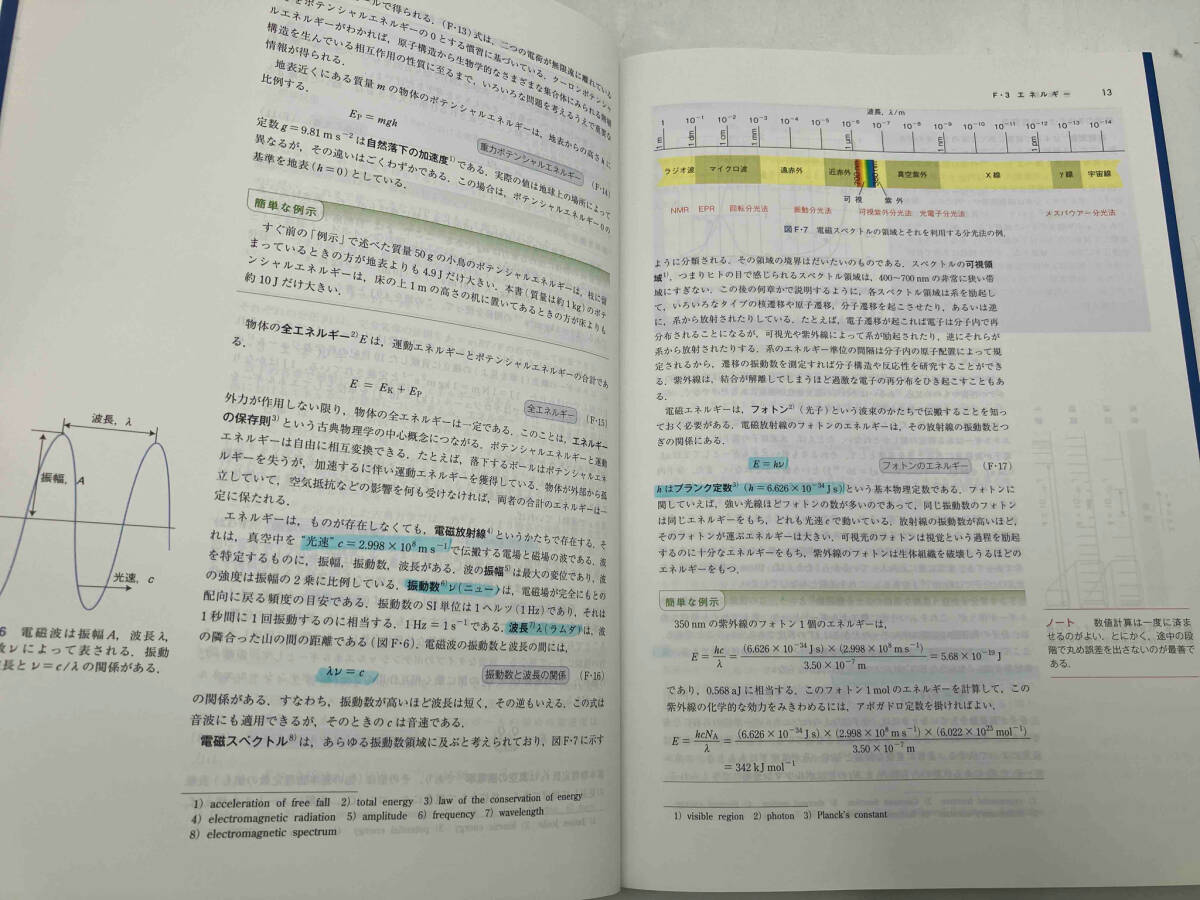 ルで得られる．(F・13)式は，二つの電荷が無限遠に離れている
をポテンシャルエネルギーの0とする慣習に基づいている．クーロンポテンシャ
ルエネルギーがわかれば，原子構造から生物学的なさまざまな集合体にみられる階層
構造を生んでいる相互作用の性質に至るまで，いろいろな問題を考えるうえで重要な
情報が得られる．
地表近くにある質量 m の物体のポテンシャルエネルギーは，地表からの高さ h に
比例する．
EP = mgh
重力ポテンシャルエネルギー
(F・14)
定数 g = 9.81 m s−2 は自然落下の加速度1) である．実際の値は地球上の場所によって
異なるが，その違いはごくわずかである．この場合は，ポテンシャルエネルギー0の
基準を地表 (h = 0) としている．
簡単な例示
すぐ前の「例示」で述べた質量 50 g の小鳥のポテンシャルエネルギーは，枝に留
まっているときの方が地表よりも 4.9 J だけ大きい．本書 (質量は約 1 kg) のポテ
ンシャルエネルギーは，床の上 1 m の高さの机に置いてあるときの方が床よりも
約 10 J だけ大きい．
物体の全エネルギー2) E は，運動エネルギーとポテンシャルエネルギーの合計であ
る．
E = EK + EP
全エネルギー
(F・15)
外力が作用しない限り，物体の全エネルギーは一定である．このことは，エネルギー
の保存則3) という古典物理学の中心概念につながる．ポテンシャルエネルギーと運動
エネルギーは自由に相互変換できる．たとえば，落下するボールはポテンシャルエネ
ルギーを失うが，加速するに伴い運動エネルギーを獲得している．物体が外部から孤
立していて，空気抵抗などの影響を何も受けなければ，両者の合計のエネルギーは一
定に保たれる．
エネルギーは，ものが存在しなくても，電磁放射線4) というかたちで存在する．そ
れは，真空中を “光速” c = 2.998 × 108 m s−1 で伝搬する電場と磁場の波である．波
を特定するものに，振幅，振動数，波長がある．波の振幅5) は最大の変位であり，波
の強度は振幅の2乗に比例している．振動数6) ν (ニュー) は，電磁場が完全にもとの
配向に戻る頻度の目安である．振動数の SI 単位は1ヘルツ (1 Hz) であり，それは
1秒間に1回振動するのに相当する．1 Hz = 1 s−1 である．波長7) λ (ラムダ) は，波
の隣合った山の間の距離である (図F・6)．電磁波の振動数と波長の間には，
λν = c
振動数と波長の関係
(F・16)
の関係がある．すなわち，振動数が高いほど波長は短く，その逆もいえる．この式は
音波にも適用できるが，そのときの c は音速である．
電磁スペクトル8) は，あらゆる振動数領域に及ぶと考えられており，図F・7に示す
1) acceleration of free fall 2) total energy 3) law of the conservation of energy
4) electromagnetic radiation 5) amplitude 6) frequency 7) wavelength
8) electromagnetic spectrum
波長, λ
振幅, A
光速, c
6 電磁波は振幅 A，波長 λ,
数 ν によって表される．振動
長と ν = c/λ の関係がある．
F・3 エネルギー 13
波長, λ/m
1 10−1 10−2 10−3 10−4 10−5 10−6 10−7 10−8 10−9 10−10 10−11 10−12 10−13 10−14
1 m 1 dm 1 cm 1 mm 1 μm 1 nm 1 pm
ラジオ波 マイクロ波 遠赤外 近赤外 真空紫外 X 線 γ 線 宇宙線
可視 紫外
NMR EPR 回転分光法 振動分光法 可視紫外分光法 光電子分光法 メスバウアー分光法
図F・7 電磁スペクトルの領域とそれを利用する分光法の例．
ように分類される．その領域の境界はだいたいのものである．スペクトルの可視領
域1)，つまりヒトの目で感じられるスペクトル領域は，400〜700 nm の非常に狭い帯
域にすぎない．この後の何章かで説明するように，各スペクトル領域は系を励起し
て，いろいろなタイプの核遷移や原子遷移，分子遷移を起こさせたり，あるいは逆
に，系から放射されたりしている．たとえば，電子遷移が起これば電子は分子内で再
分布されることになるが，可視光や紫外線によって系が励起されたり，逆にそれらが
系から放射されたりする．系のエネルギー準位の間隔は分子内の原子配置によって規
定されるから，遷移の振動数を測定すれば分子構造や反応性を研究することができ
る．紫外線は，結合が解離してしまうほど過激な電子の再分布をひき起こすこともあ
る．
電磁エネルギーは，フォトン2) (光子) という波束のかたちで伝搬することを知っ
ておく必要がある．電磁放射線のフォトンのエネルギーは，その放射線の振動数とつ
ぎの関係にある．
E = hν
フォトンのエネルギー
(F・17)
h はプランク定数3) (h = 6.626 × 10−34 J s) という基本物理定数である．フォトンに
関していえば，強い光線ほどフォトンの数が多いのであって，同じ振動数のフォトン
は同じエネルギーをもち，どれも光速 c で動いている．放射線の振動数が高いほど，
そのフォトンが運ぶエネルギーは大きい．可視光のフォトンは視覚という過程を励起
するのに十分なエネルギーをもち，紫外線のフォトンは生体組織を破壊しうるほどの
エネルギーをもつ．
簡単な例示
350 nm の紫外線のフォトン1個のエネルギーは，
E = hc/λ = (6.626 × 10−34 J s) × (2.998 × 108 m s−1)/3.50 × 10−7 m = 5.68 × 10−19 J
であり，0.568 aJ に相当する．このフォトン 1 mol のエネルギーを計算して，この
紫外線の化学的な効力をみきわめるには，アボガドロ定数を掛ければよい．
E = hcNA/λ = (6.626 × 10−34 J s) × (2.998 × 108 m s−1) × (6.022 × 1023 mol−1)/3.50 × 10−7 m
= 342 kJ mol−1
ノート 数値計算は一度に済ま
せるのがよい．とにかく，途中の段
階で丸め誤差を出さないのが最善で
ある．
1) visible region 2) photon 3) Planck's constant